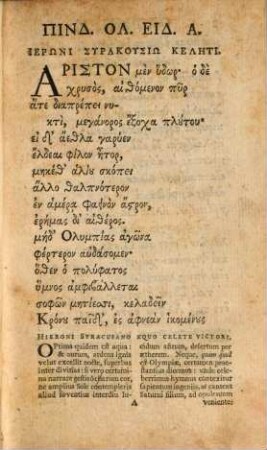 ΠΙΝΔ. ΟΛ. ΕΙΔ. Α.
ΙΕΡΩΝΙ ΣΥΡΑΚΟΥΣΙΩ ΚΕΛΗΤΙ.
ΑΡΙΣΤΟΝ μὲν ὕδωρ· ὁ δὲ
χρυσὸς, αἰθόμενον πῦρ
ἅτε διαπρέπει νυ-
κτὶ, μεγάνορος ἔξοχα πλύτου·
εἰ δ' ἄεθλα γαρύεν
ἔλδεαι φίλον ἦτορ,
μηκέθ' ἁλίου σκόπει
ἄλλο θαλπνότερον
ἐν ἁμέρᾳ φαεινὸν ἄστρον,
ἐρήμας δι' αἰθέρος.
μηδ' Ολυμπίας ἀγῶνα
φέρτερον αὐδάσομεν·
ὅθεν ὁ πολύφατος
ὕμνος ἀμφιβάλλεται
σοφῶν μητίεσσι, κελαδεῖν
Κρόνου παῖδ', ἐς ἀφνεὰν ἱκομένους
HIERONI SYRACUSANO EQUO CELETE VICTORI.
OPtima quidem est aqua:
& aurum, ardens ignis
velut excellit nocte, superbas
inter divitias: si verò certamina
narrare gestis
cor, ne amplius Sole contempleris
aliud
endum astrum, desertum per
ætherem. Neque,
Olympiæ, certamen præstantius
dicemus: unde celeberrimus
hymnus contexitur
sapientum ingeniis, ut cantent
Saturni filium, ad opulentam
A
venientes